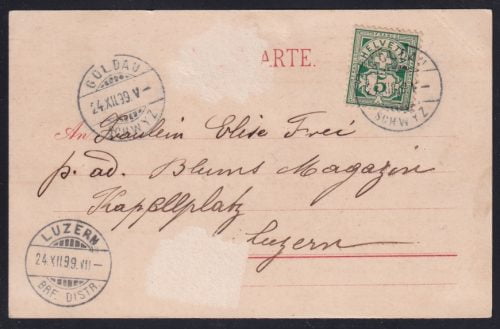 ARTE.
HELVETIA
5
GOLDAU
SCHWYZ
SCHWYZ
An Fräulein Elise Frei
p. ad. Blums Magazin
Kapellplatz
Luzern
LUZERN
24.XII.99.VII–
BRF. DISTR.